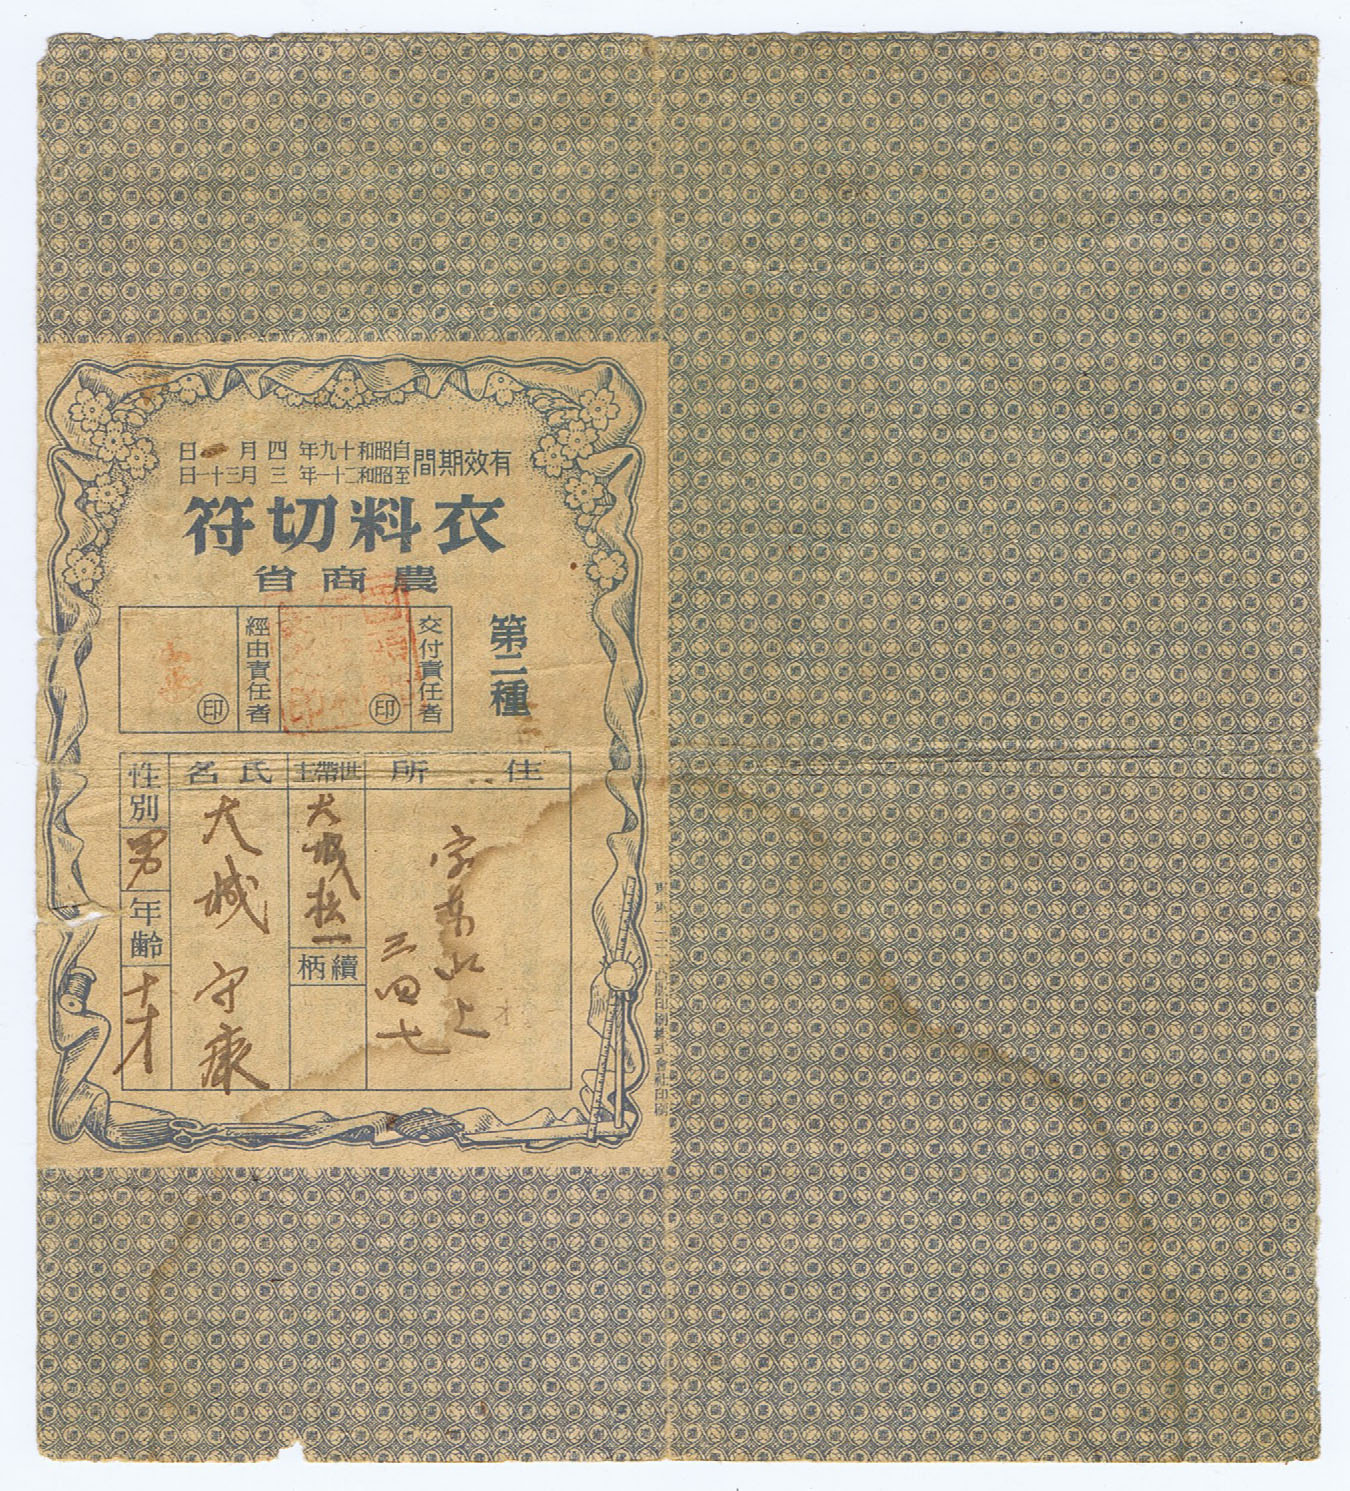 有效期間
自昭和十九年四月一日
至昭和二十一年三月三十一日
衣料切符
農商省
第二種
交付責任者
印
經由責任者
印
住所
字 山上
三四七
世帶主
大城松一
續柄
氏名
大城 守康
性別
男
年齡
十才
凸版印刷株式會社印刷